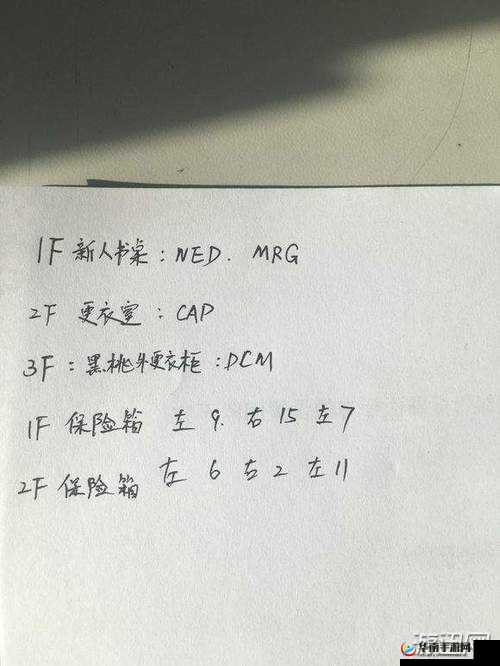 1F 新人书桌：NED. MRG
2F 更衣室：CAP
3F：黑桃外更衣柜：DCM
1F 保险箱 左 9. 右 15 左 7
2F 保险箱 左 6 右 2 左 11
华南手游网